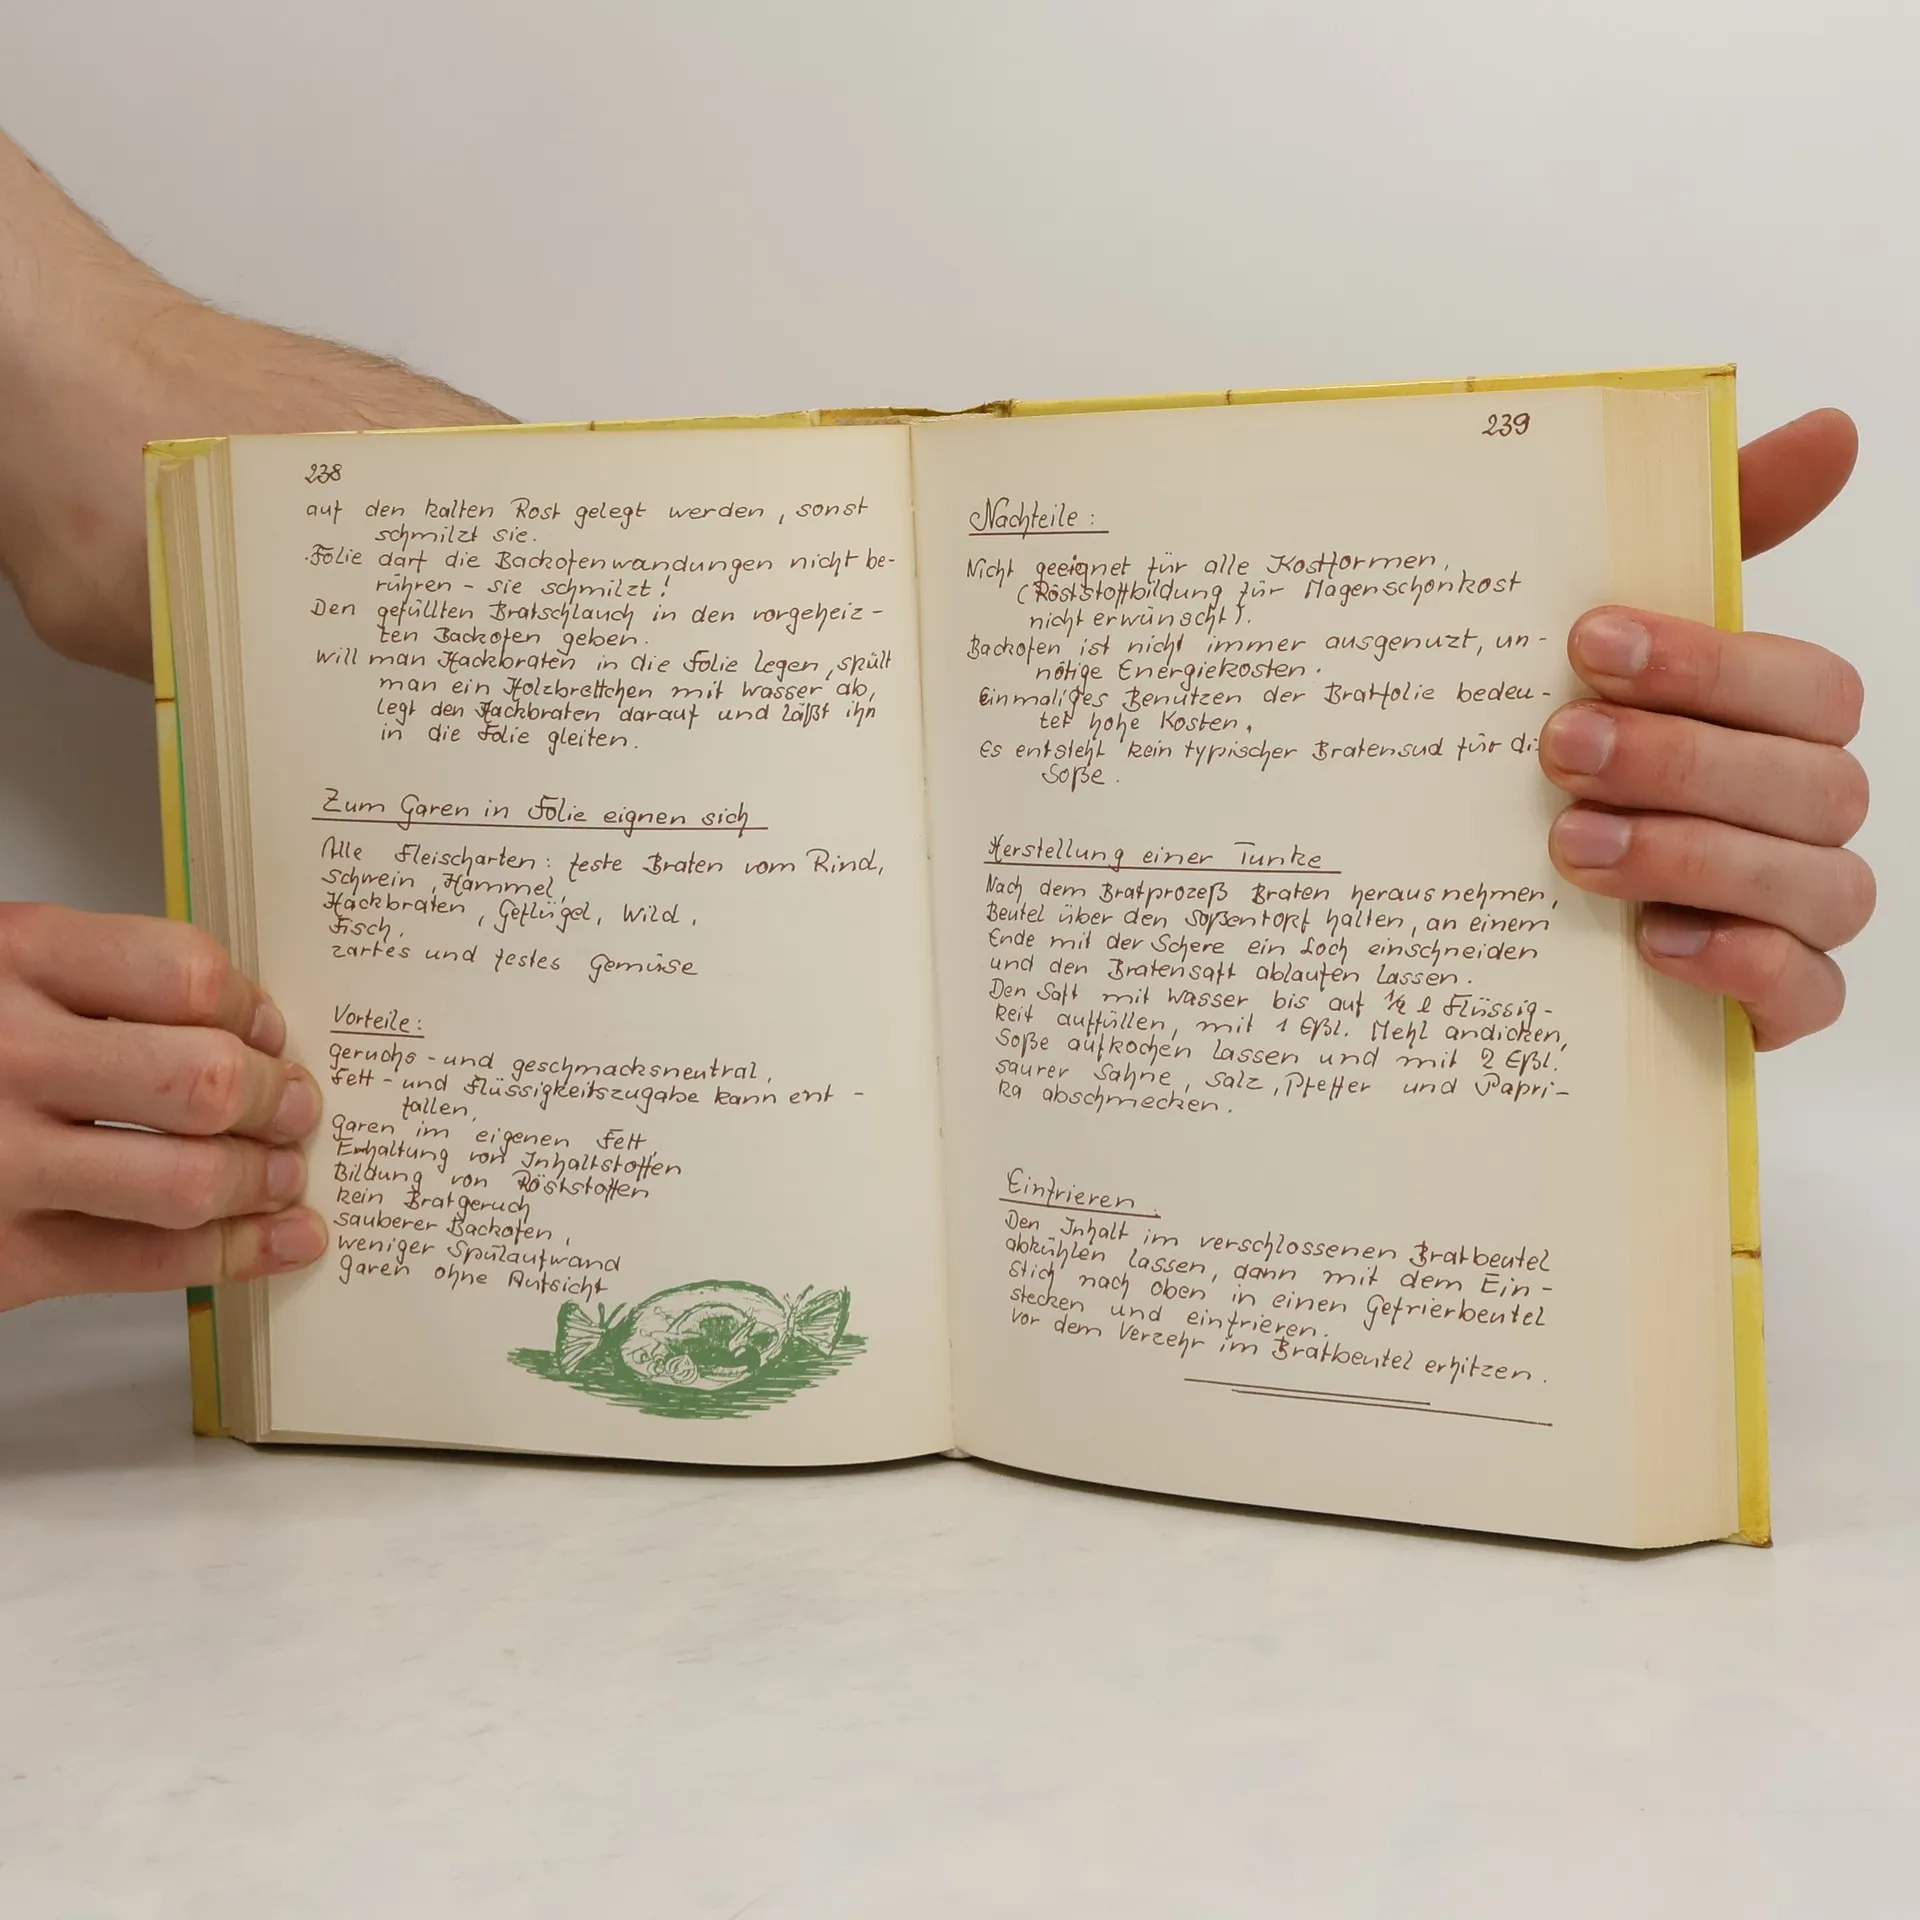 238
auf den kalten Rost gelegt werden, sonst
schmilzt sie.
Folie darf die Backofenwandungen nicht be-
rühren - sie schmilzt!
Den gefüllten Bratschlauch in den vorgeheiz-
ten Backofen geben.
Will man Hackbraten in die Folie legen, spült
man ein Holzbrettchen mit Wasser ab,
legt den Hackbraten darauf und läßt ihn
in die Folie gleiten.
Zum Garen in Folie eignen sich
Alle Fleischarten: feste Braten vom Rind,
Schwein, Hammel,
Hackbraten, Geflügel, Wild,
Fisch,
zartes und festes Gemüse
Vorteile:
geruchs- und geschmacksneutral,
Fett- und Flüssigkeitszugabe kann ent-
fallen,
Garen im eigenen Fett,
Erhaltung von Inhaltstoffen
Bildung von Röststoffen
kein Bratgeruch
sauberer Backofen,
weniger Spülaufwand
Garen ohne Aufsicht
239
Nachteile:
Nicht geeignet für alle Kostformen,
(Röststoffbildung für Magenschonkost
nicht erwünscht).
Backofen ist nicht immer ausgenuzt, un-
nötige Energiekosten.
Einmaliges Benutzen der Bratfolie bedeu-
tet hohe Kosten.
Es entsteht kein typischer Bratensud für di
Soße.
Herstellung einer Tunke
Nach dem Bratprozeß Braten herausnehmen,
Beutel über den Soßentopf halten, an einem
Ende mit der Schere ein Loch einschneiden
und den Bratensaft ablaufen lassen.
Den Saft mit Wasser bis auf ½ l Flüssig-
keit auffüllen, mit 1 Eßl. Mehl andicken,
Soße aufkochen lassen und mit 2 Eßl.
saurer Sahne, Salz, Pfeffer und Papri-
ka abschmecken.
Einfrieren.
Den Inhalt im verschlossenen Bratbeutel
abkühlen lassen, dann mit dem Ein-
stich nach oben in einen Gefrierbeutel
stecken und einfrieren.
Vor dem Verzehr im Bratbeutel erhitzen.